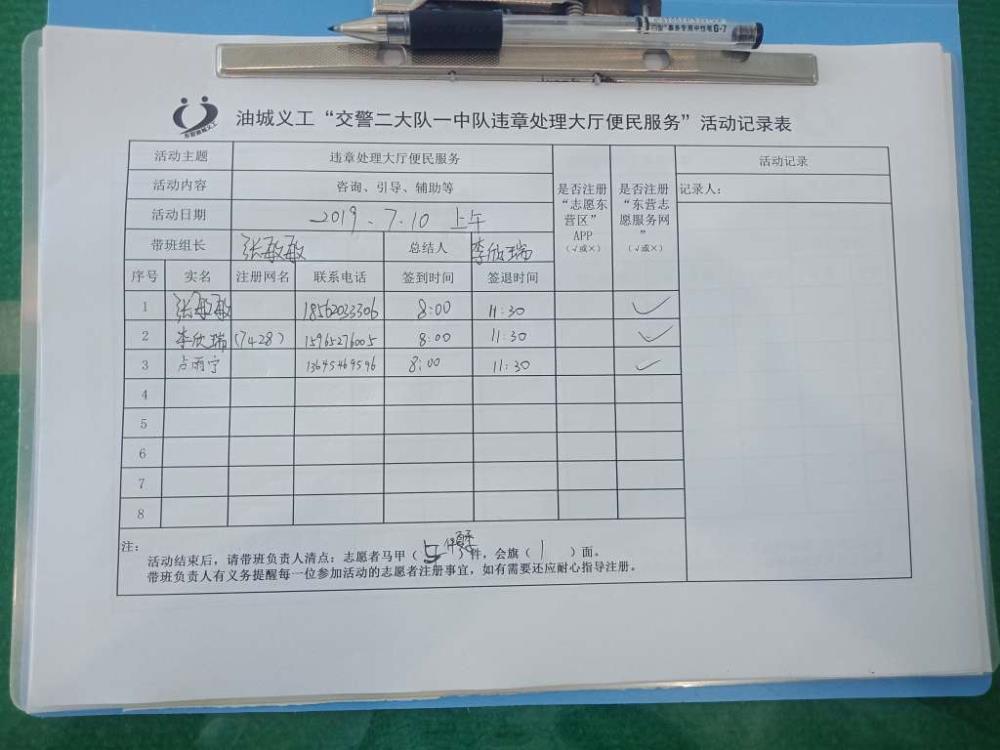 事务专用中性笔G-7
东营油城义工
油城义工“交警二大队一中队违章处理大厅便民服务”活动记录表
活动主题 违章处理大厅便民服务
活动内容 咨询、引导、辅助等
活动日期 2019.7.10 上午
带班组长 张敏敏 总结人 李欣瑞
是否注册“志愿东营区”APP（√或×）
是否注册“东营志愿服务网”（√或×）
活动记录
记录人：
序号 实名 注册网名 联系电话 签到时间 签退时间
1 张敏敏 18562033306 8:00 11:30 √
2 李欣瑞 (7428) 15965276005 8:00 11:30 √
3 卢雨宁 13645469596 8:00 11:30 √
4
5
6
7
8
注：
活动结束后，请带班负责人清点：志愿者马甲（ ）件，会旗（ 1 ）面。
带班负责人有义务提醒每一位参加活动的志愿者注册事宜，如有需要还应耐心指导注册。